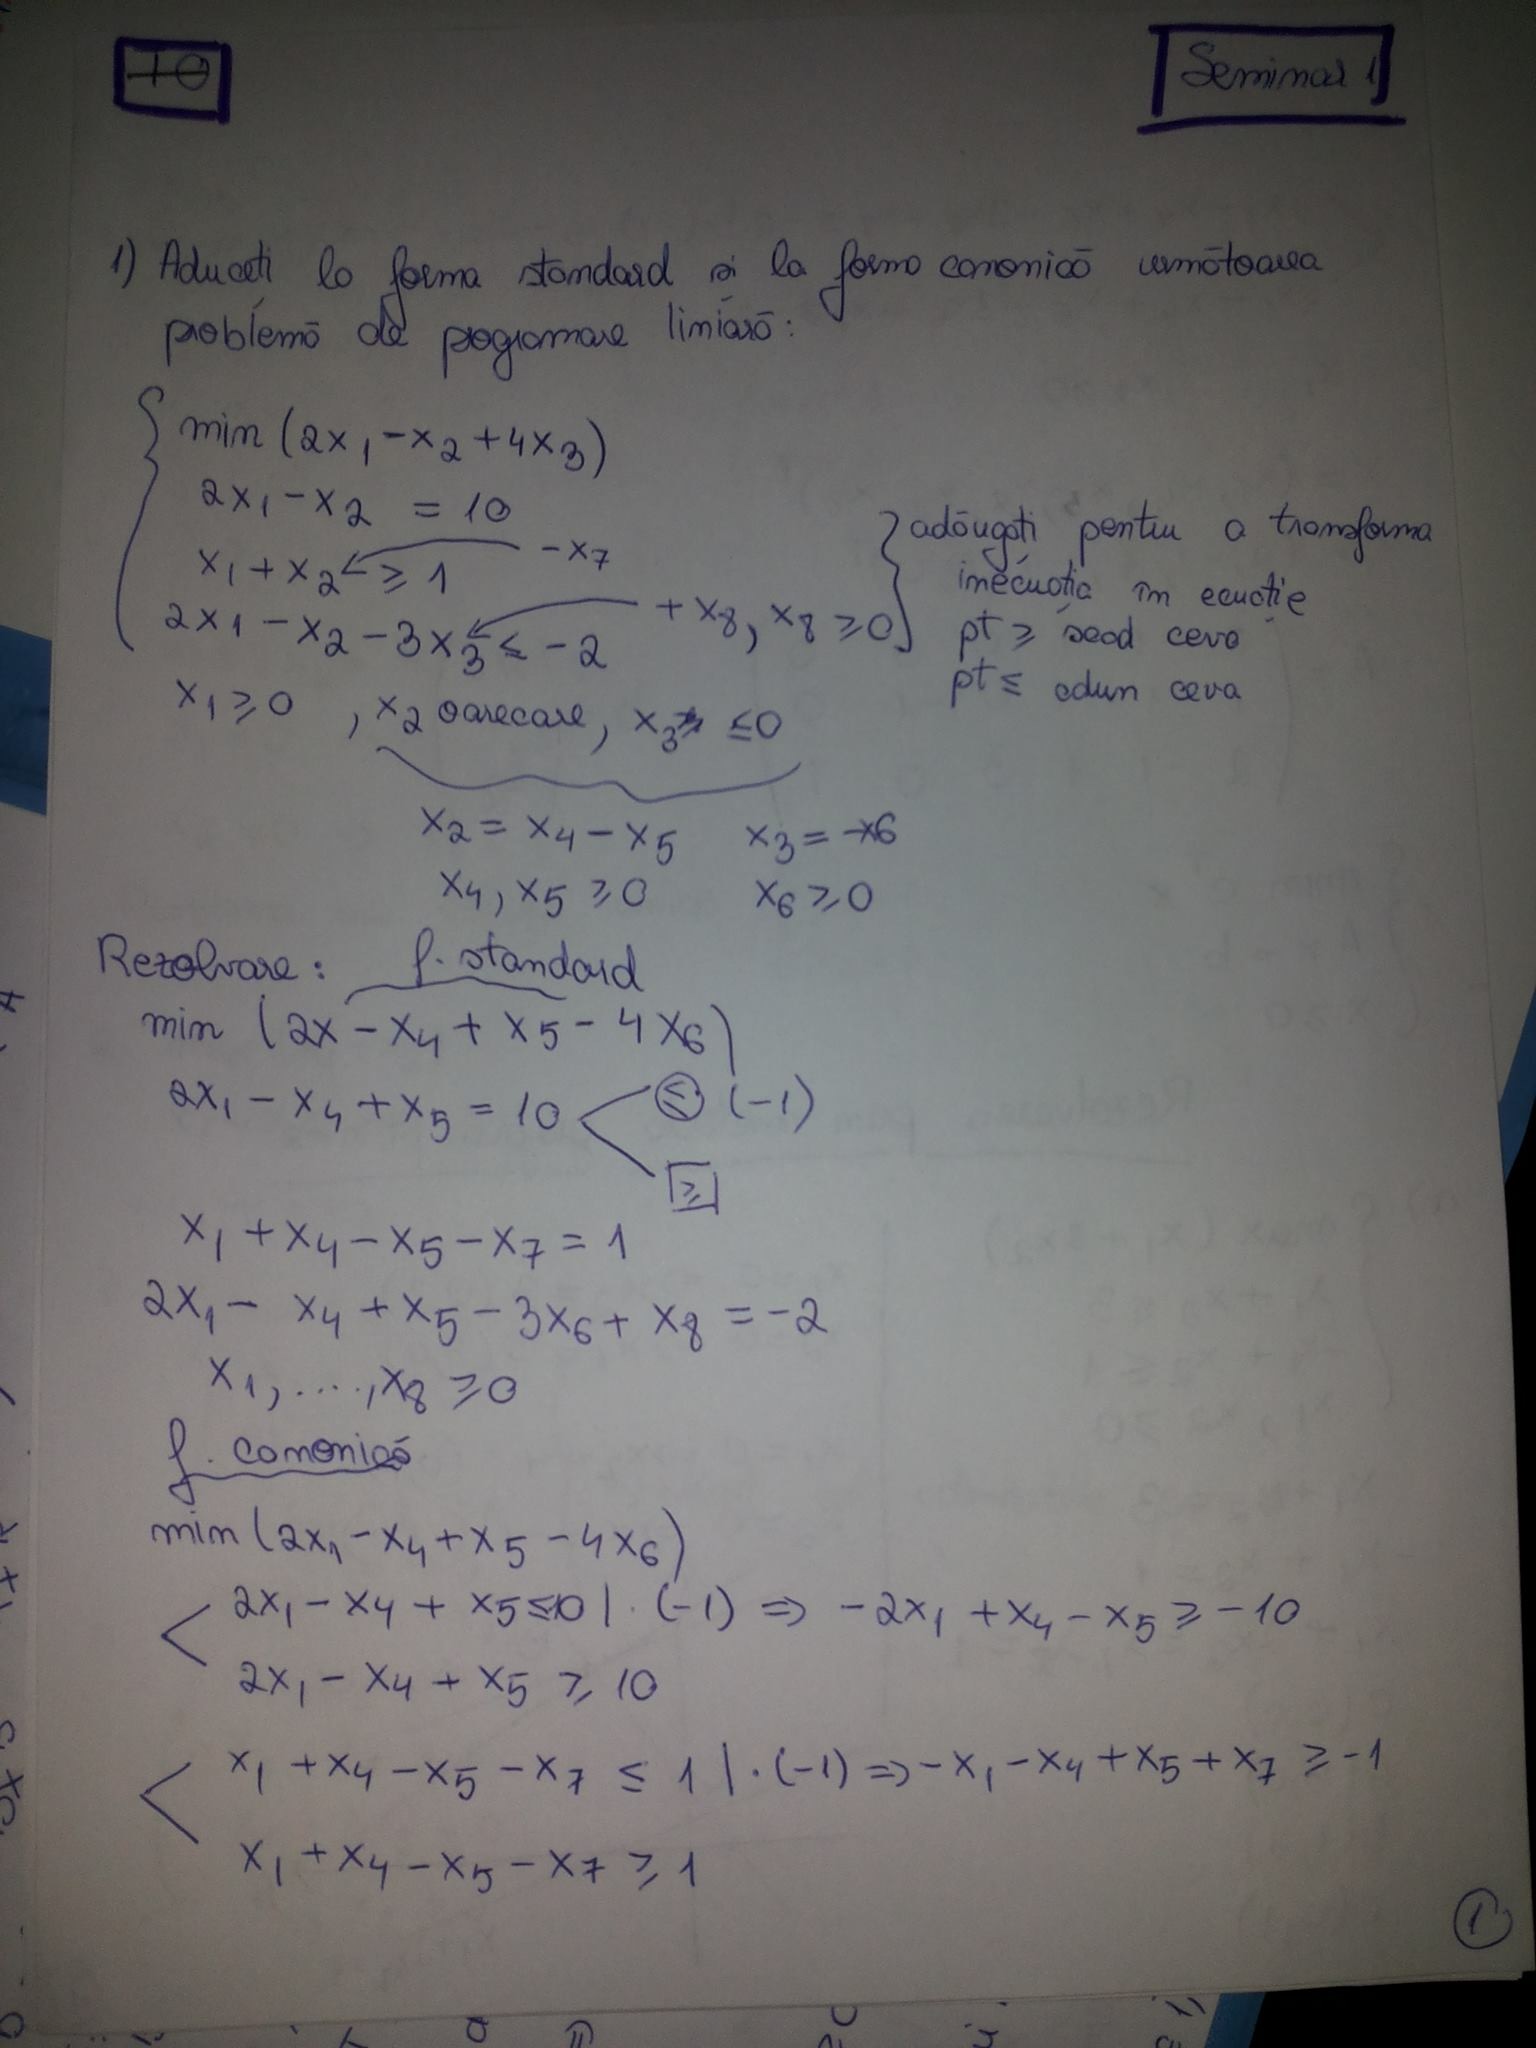 TO
Seminar 1
1) Aduceti la forma standard și la forma canonică următoarea
problemă de programare liniară:
min (2x₁ - x₂ + 4x₃)
2x₁ - x₂ = 10
x₁ + x₂ ≥ 1 - x₇
2x₁ - x₂ - 3x₃ ≤ -2 + x₈, x₈ ≥ 0
adăugați pentru a transforma
inecuația în ecuație
pt ≥ scad ceva
pt ≤ adun ceva
x₁ ≥ 0, x₂ oarecare, x₃ ≤ 0
x₂ = x₄ - x₅ x₃ = -x₆
x₄, x₅ ≥ 0 x₆ ≥ 0
Rezolvare: f. standard
min (2x - x₄ + x₅ - 4x₆)
2x₁ - x₄ + x₅ = 10 < ≤ (-1)
≥
x₁ + x₄ - x₅ - x₇ = 1
2x₁ - x₄ + x₅ - 3x₆ + x₈ = -2
x₁, ...., x₈ ≥ 0
f. canonică
min (2x₁ - x₄ + x₅ - 4x₆)
2x₁ - x₄ + x₅ ≤ 10 | · (-1) ⇒ -2x₁ + x₄ - x₅ ≥ -10
2x₁ - x₄ + x₅ ≥ 10
x₁ + x₄ - x₅ - x₇ ≤ 1 | · (-1) ⇒ -x₁ - x₄ + x₅ + x₇ ≥ -1
x₁ + x₄ - x₅ - x₇ ≥ 1
1